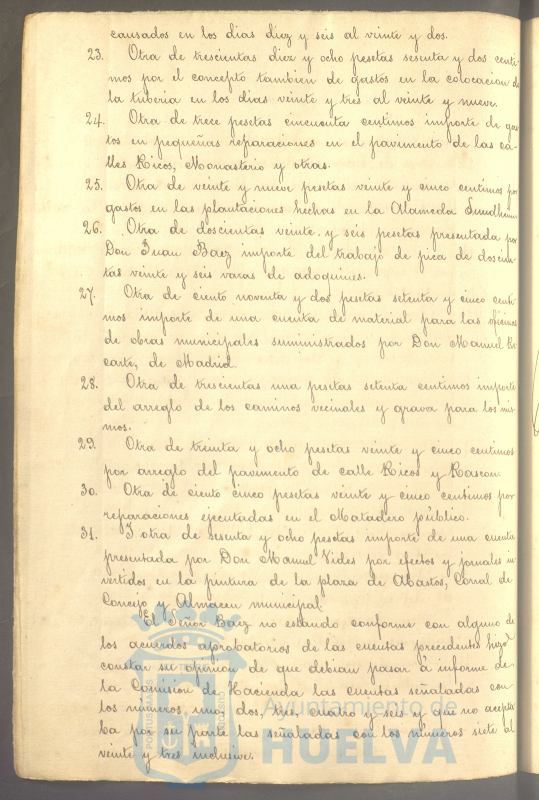 causados en los dias diez y seis al veinte y dos.
23. Otra de trescientas diez y ocho pesetas sesenta y dos centi-
mos por el concepto tambien de gastos en la colocacion de
la tuberia en los dias veinte y tres al veinte y nueve.
24. Otra de trece pesetas cincuenta centimos importe de gas
tos en pequeñas reparaciones en el pavimento de las ca-
lles Ricos, Monasterio y otras.
25. Otra de veinte y nueve pesetas veinte y cinco centimos por
gastos en las plantaciones hechas en la Alameda Sundheim
26. Otra de doscientas veinte y seis pesetas presentada por
Don Juan Baez importe del trabajo de pica de doscien-
tas veinte y seis varas de adoquines.
27. Otra de ciento noventa y dos pesetas setenta y cinco centi-
mos importe de una cuenta de material para las oficinas
de obras municipales suministrados por Don Manuel Re
carte, de Madrid.
28. Otra de trescientas una pesetas setenta centimos importe
del arreglo de los caminos vecinales y grava para los mis
mos.
29. Otra de treinta y ocho pesetas veinte y cinco centimos
por arreglo del pavimento de calle Ricos y Rascon
30. Otra de ciento cinco pesetas veinte y cinco centimos por
reparaciones ejecutadas en el Matadero público.
31. Y otra de sesenta y ocho pesetas importe de una cuenta
presentada por Don Manuel Vides por efectos y jornales in
vertidos en la pintura de la plaza de Abastos, Corral de
Concejo y Almacen municipal.
El Señor Baez no estando conforme con alguno de
los acuerdos aprobatorios de las cuentas precedentes hizo
constar su opinion de que debian pasar á informe de
la Comision de Hacienda las cuentas señaladas con
los números, uno, dos, tres, cuatro y seis y que no acepta
ba por su parte las señaladas con los números siete al
veinte y tres inclusive.
Ayuntamiento de
HUELVA